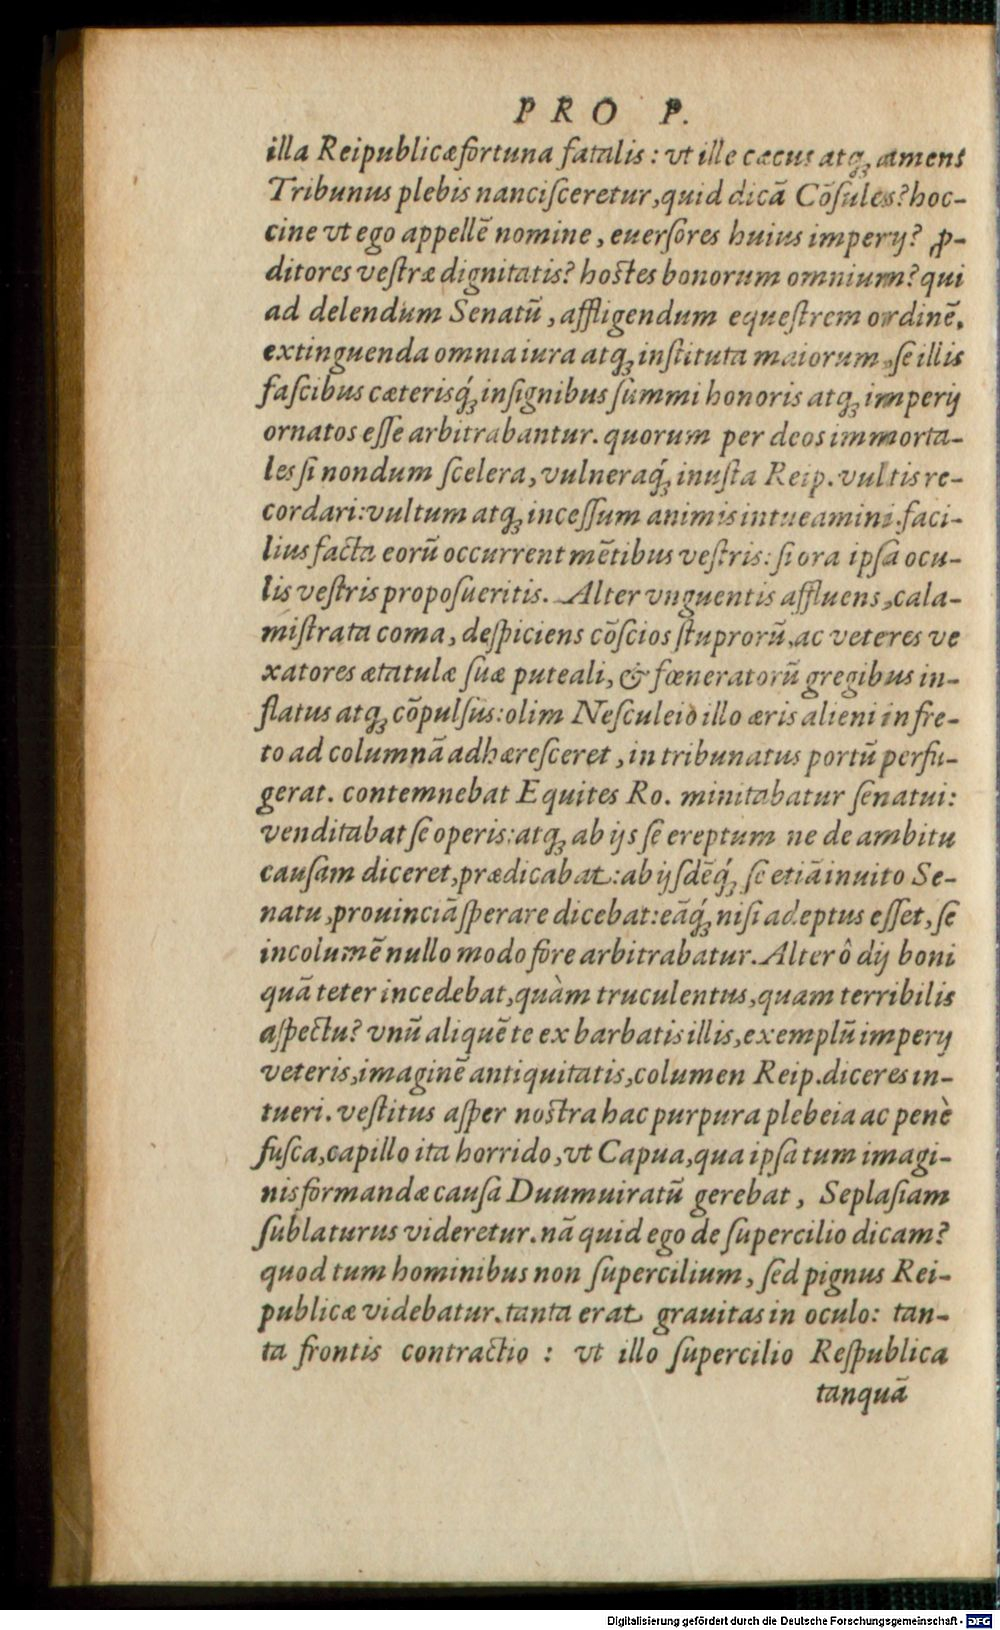 PRO P.
illa Reipublicæ fortuna fatalis: vt ille cæcus atq; amens
Tribunus plebis nancisceretur, quid dicā Cōſules? hoc-
cine vt ego appellē nomine, euerſores huius imperij? ꝓ-
ditores veſtræ dignitatis? hoſtes bonorum omnium? qui
ad delendum Senatū, affligendum equeſtrem ordinē,
extinguenda omnia iura atq; inſtituta maiorum, ſe illis
faſcibus cæterisq́; inſignibus ſummi honoris atq; imperij
ornatos eſſe arbitrabantur. quorum per deos immorta-
les ſi nondum ſcelera, vulneraq́; inuſta Reip. vultis re-
cordari: vultum atq; inceſſum animis intueamini. faci-
lius facta eorū occurrent mētibus veſtris: ſi ora ipſa ocu-
lis veſtris propoſueritis. Alter vnguentis affluens, cala-
miſtrata coma, deſpiciens cōſcios ſtuprorū, ac veteres ve
xatores ætatulæ ſuæ puteali, & fœneratorū gregibus in-
flatus atq; cōpulſus: olim Neſculeio illo æris alieni in fre-
to ad columnā adhæreſceret, in tribunatus portū perfu-
gerat. contemnebat Equites Ro. minitabatur ſenatui:
venditabat ſe operis: atq; ab ijs ſe ereptum ne de ambitu
cauſam diceret, prædicabat: ab ijſdēq́; ſe etiā inuito Se-
natu, prouinciā ſperare dicebat: eāq́; niſi adeptus eſſet, ſe
incolumē nullo modo fore arbitrabatur. Alter ô dij boni
quā teter incedebat, quàm truculentus, quam terribilis
aſpectu? vnū aliquē te ex barbatis illis, exemplū imperij
veteris, imaginē antiquitatis, columen Reip. diceres in-
tueri. veſtitus aſper noſtra hac purpura plebeia ac penè
fuſca, capillo ita horrido, vt Capua, qua ipſa tum imagi-
nis formandæ cauſa Duumuiratū gerebat, Seplaſiam
ſublaturus videretur. nā quid ego de ſupercilio dicam?
quod tum hominibus non ſupercilium, ſed pignus Rei-
publicæ videbatur. tanta erat grauitas in oculo: tan-
ta frontis contractio : vt illo ſupercilio Reſpublica
tanquā
Digitalisierung gefördert durch die Deutsche Forschungsgemeinschaft - DFG